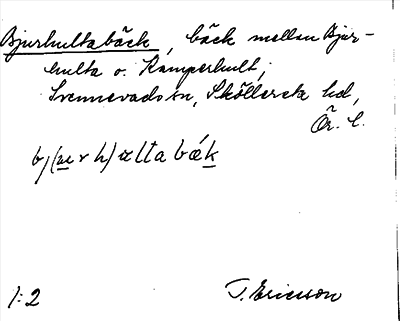 Bjurhultabäck, bäck mellan Bjur-
hulta o. Kamperhult,
Svennevads sn, Sköllersta hd,
Ör. l.
bj(u̲r h)ulta bæk̲
1:2
T. Ericsson